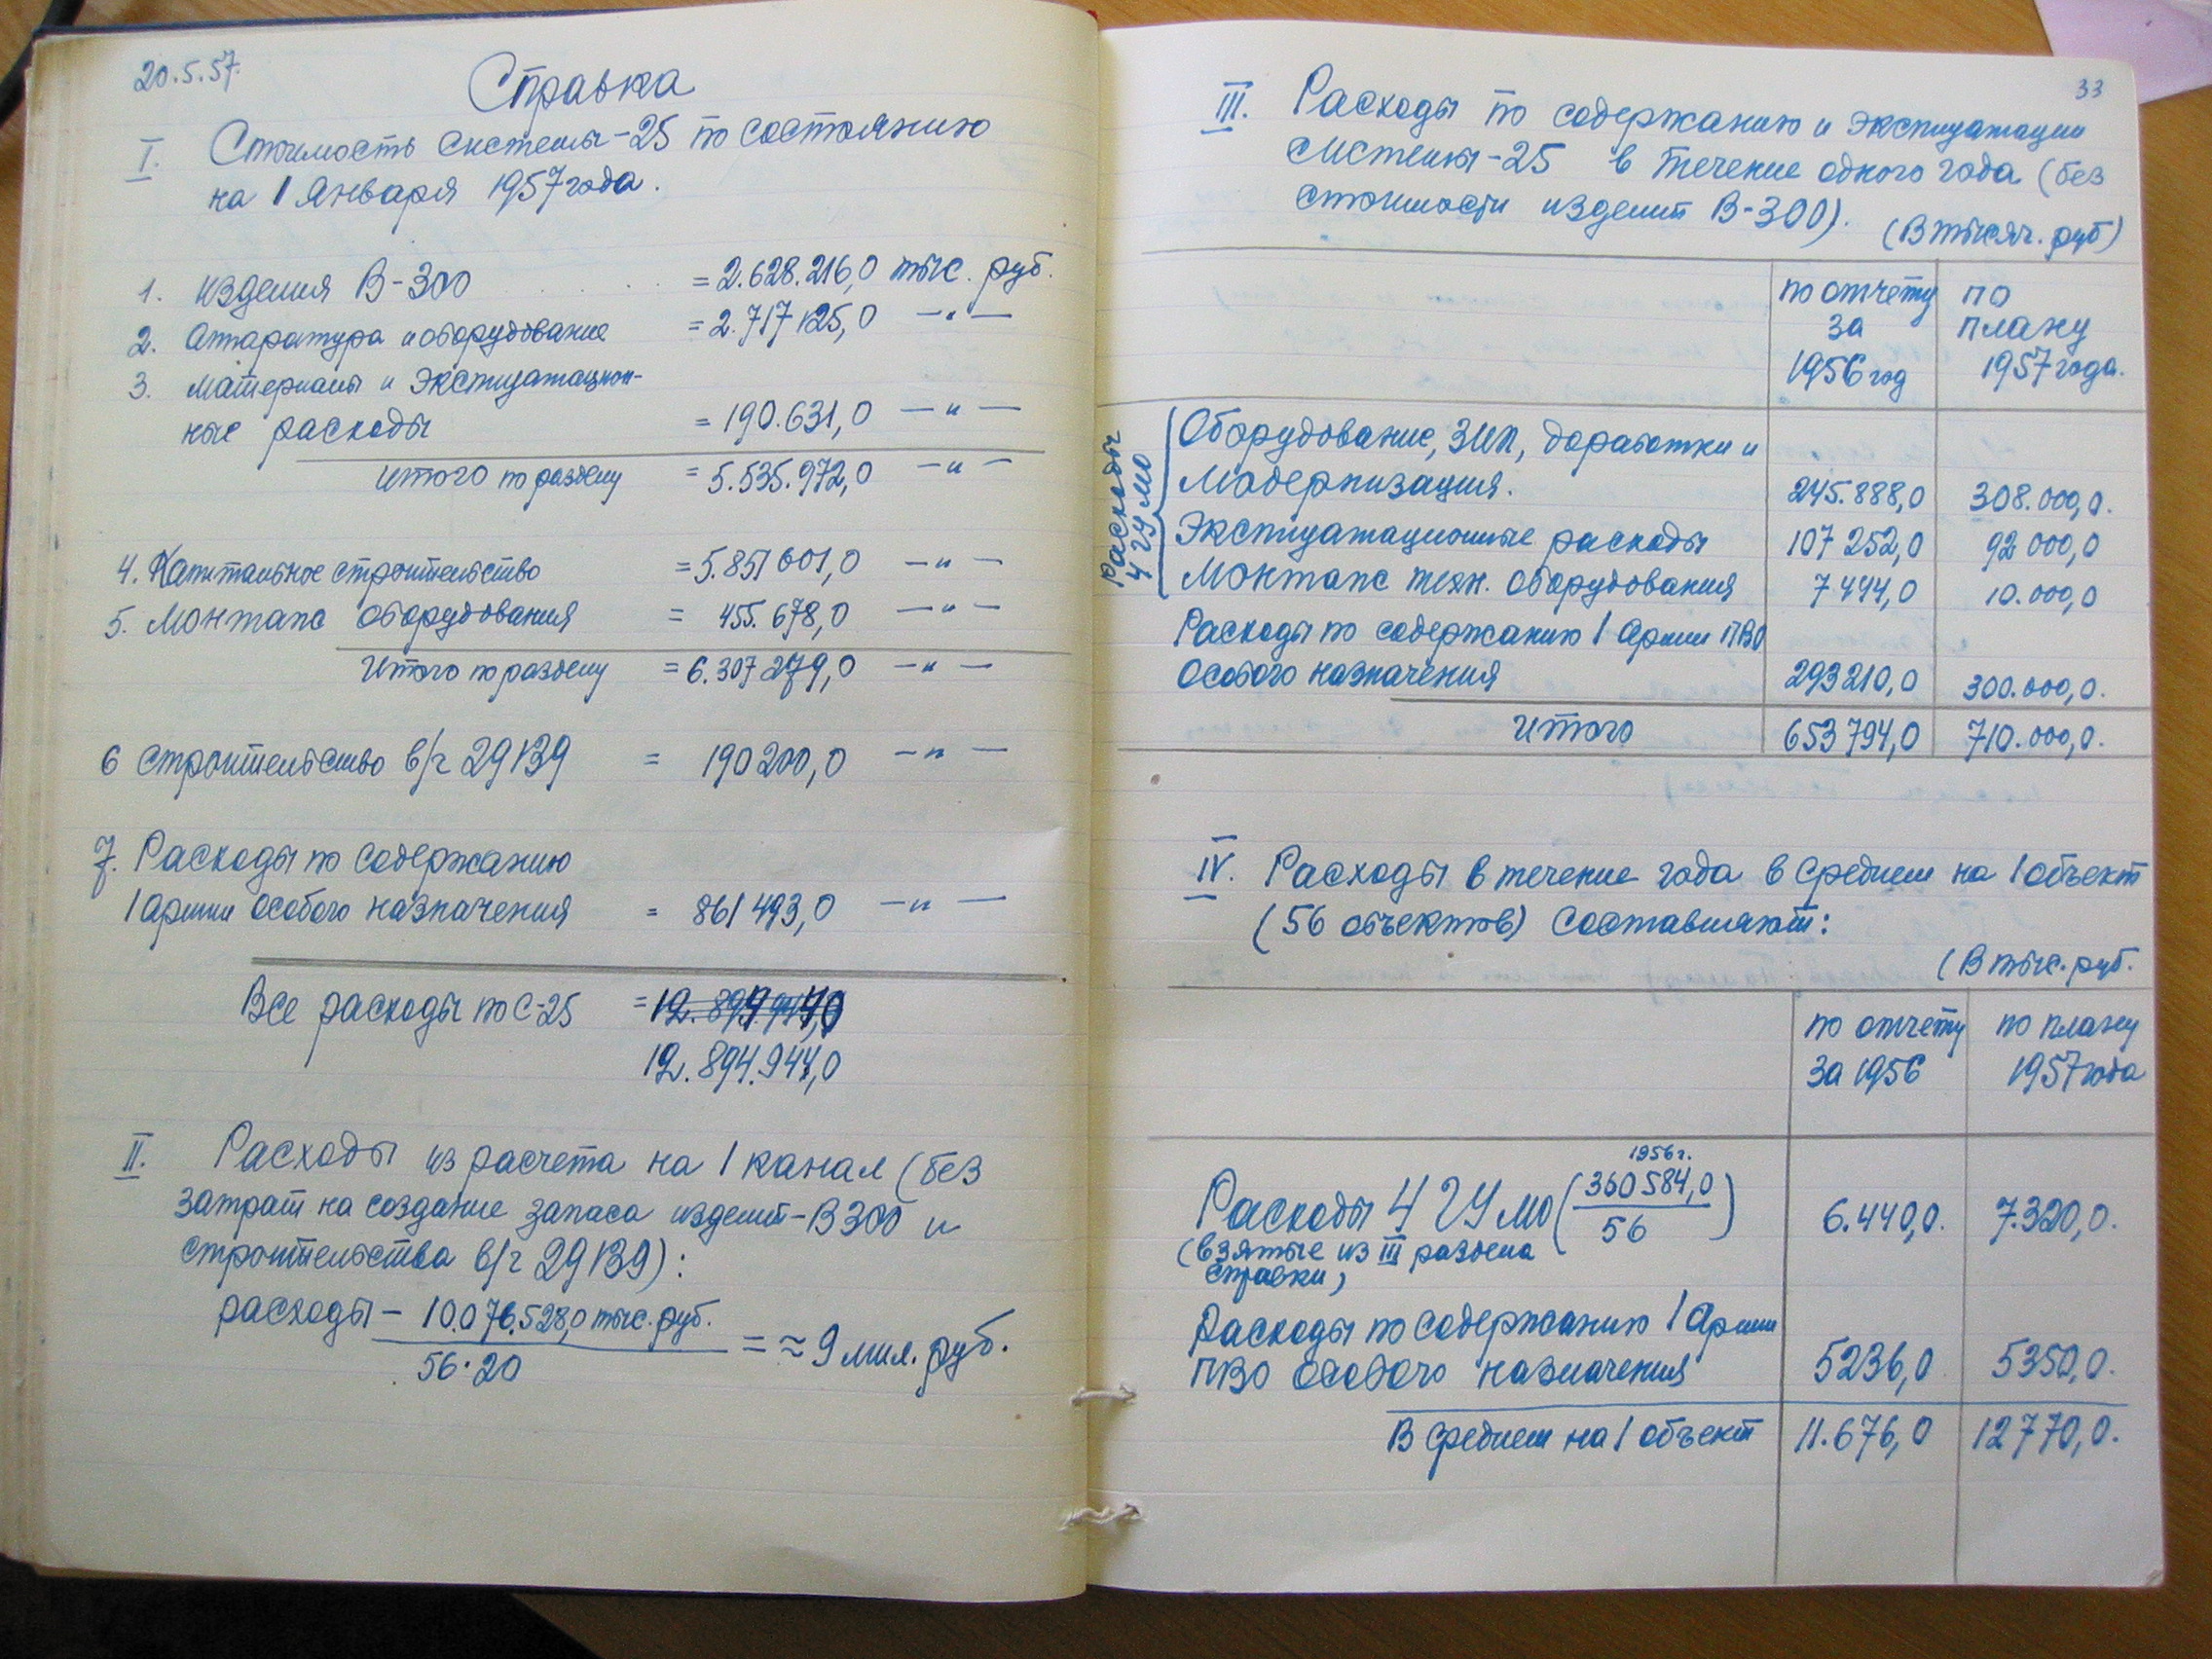 20.5.57.
Справка
I. Стоимость системы-25 по состоянию
на 1 января 1957 года.
1. изделия В-300 = 2.628.216,0 тыс. руб.
2. Аппаратура и оборудование = 2.717 125,0 —"—
3. материалы и эксплуатацион-
ные расходы = 190.631,0 —"—
итого по разделу = 5.535.972,0 —"—
4. Капитальное строительство = 5.851 601,0 —"—
5. Монтаж оборудования = 455.678,0 —"—
Итого по разделу = 6.307 279,0 —"—
6 строительство в/ч 29139 = 190 200,0 —"—
7. Расходы по содержанию
1 армии особого назначения = 861 493,0 —"—
Все расходы по С-25 =
12.894.944,0
II. Расходы из расчета на 1 канал (без
затрат на создание запаса изделий-В300 и
строительства в/ч 29139):
расходы — 10.076.528,0 тыс. руб. = ≈ 9 мил. руб.
56·20
33
III. Расходы по содержанию и эксплуатации
системы-25 в течение одного года (без
стоимости изделий В-300).
(В тысяч. руб)
по отчету по
за плану
1956 год 1957 года.
Расходы
4 ГУ МО
Оборудование, ЗИП, доработки и
Модернизация. 245.888,0 308.000,0.
Эксплуатационные расходы 107 252,0 92 000,0
Монтаж техн. оборудования 7 444,0 10.000,0
Расходы по содержанию 1 армии ПВО
особого назначения 293 210,0 300.000,0.
итого 653 794,0 710.000,0.
IV. Расходы в течение года в среднем на 1 объект
(56 объектов) составляют:
(В тыс. руб.
по отчету по плану
за 1956 1957 года
1956 г.
Расходы 4 ГУ МО (360 584,0 / 56) 6.440,0. 7.320,0.
(взятые из III раздела
справки)
Расходы по содержанию 1 Армии
ПВО особого назначения 5236,0 5350,0.
В среднем на 1 объект 11.676,0 12 770,0.